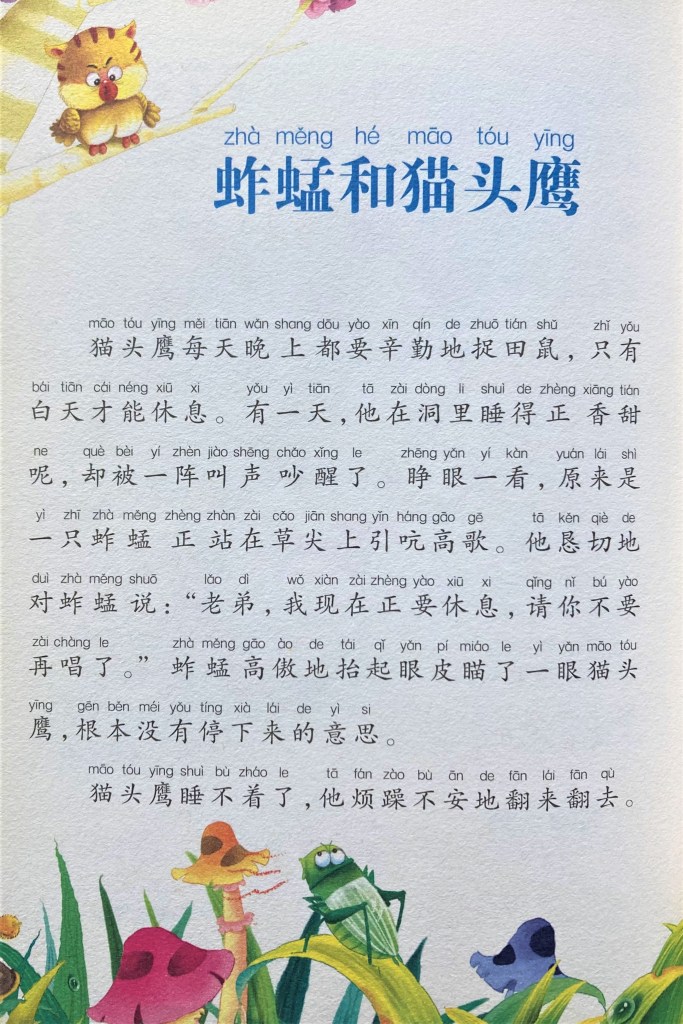 zhà měng hé māo tóu yīng
蚱蜢和猫头鹰
māo tóu yīng měi tiān wǎn shang dōu yào xīn qín de zhuō tián shǔ zhǐ yǒu
猫头鹰每天晚上都要辛勤地捉田鼠，只有
bái tiān cái néng xiū xi yǒu yì tiān tā zài dòng li shuì de zhèng xiāng tián
白天才能休息。有一天，他在洞里睡得正香甜
ne què bèi yí zhèn jiào shēng chǎo xǐng le zhēng yǎn yí kàn yuán lái shì
呢，却被一阵叫声吵醒了。睁眼一看，原来是
yì zhī zhà měng zhèng zhàn zài cǎo jiān shang yǐn háng gāo gē tā kěn qiè de
一只蚱蜢正站在草尖上引吭高歌。他恳切地
duì zhà měng shuō lǎo dì wǒ xiàn zài zhèng yào xiū xi qǐng nǐ bú yào
对蚱蜢说：“老弟，我现在正要休息，请你不要
zài chàng le zhà měng gāo ào de tái qǐ yǎn pí miáo le yì yǎn māo tóu
再唱了。”蚱蜢高傲地抬起眼皮瞄了一眼猫头
yīng gēn běn méi yǒu tíng xià lái de yì si
鹰，根本没有停下来的意思。
māo tóu yīng shuì bù zháo le tā fán zào bù ān de fān lái fān qù
猫头鹰睡不着了，他烦躁不安地翻来翻去。